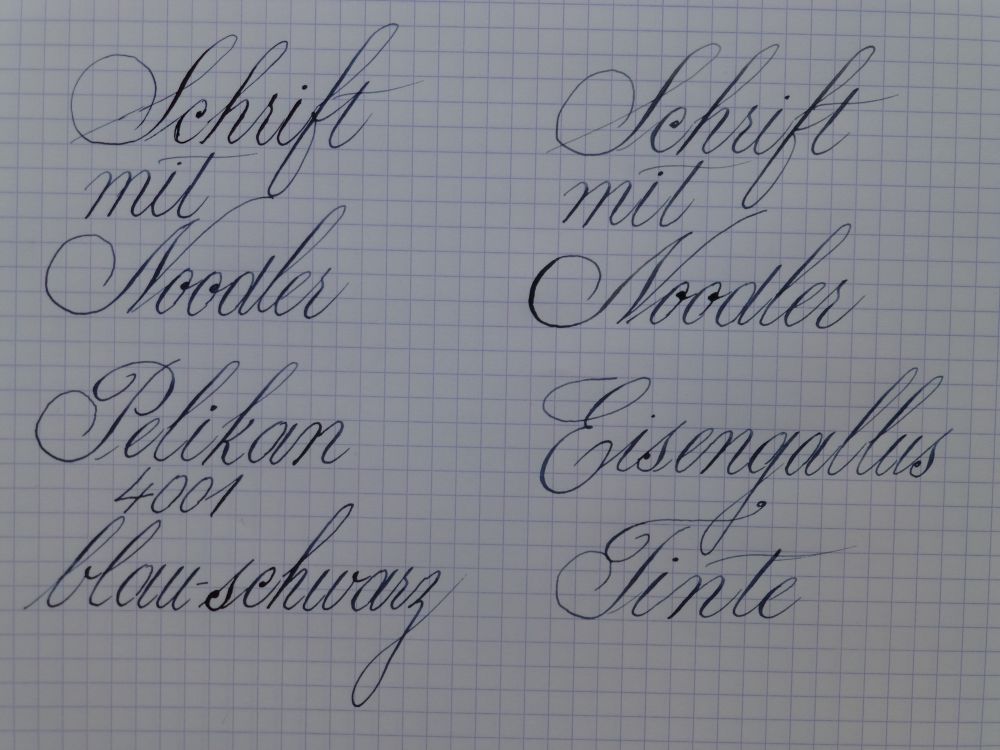 Schrift
mit
Noodler
Pelikan
4001
blau-schwarz
Schrift
mit
Noodler
Eisengallus
Tinte